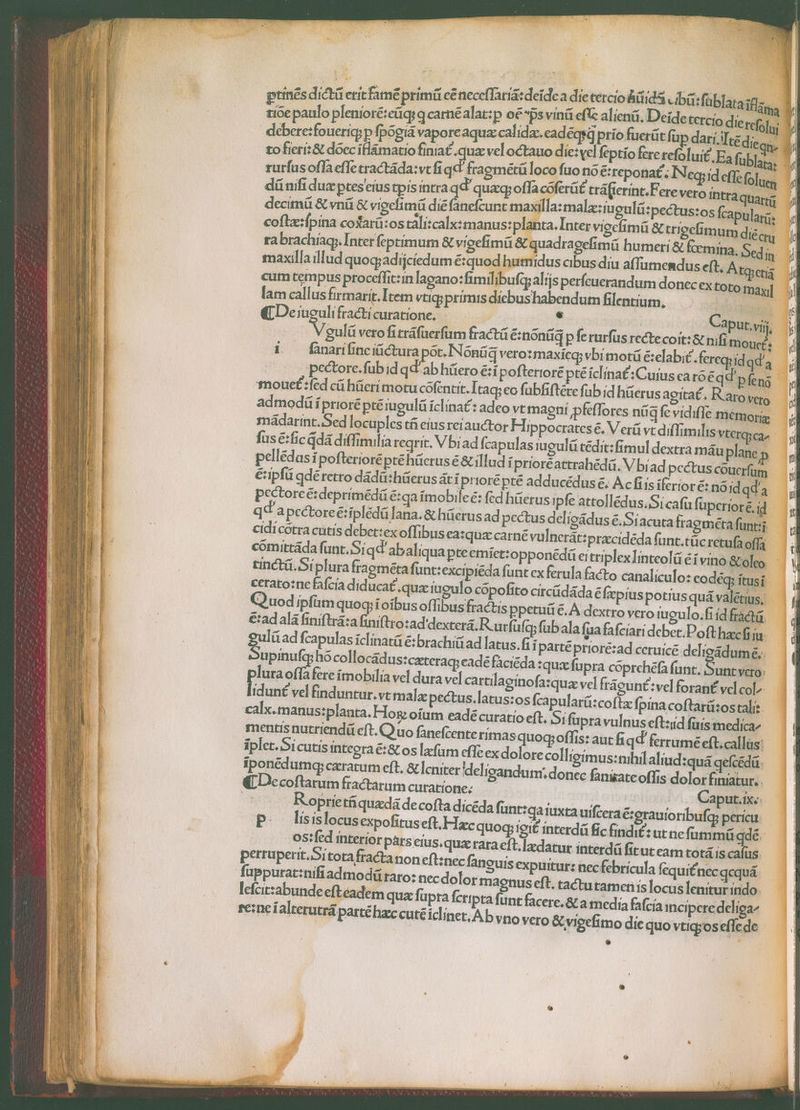 ptinēs dictū erit famē primū eē neccessariā: deīde a die tercio hūidā cibū: sublata iflāma
tiōe paulo pleniorē: eūq; q carnē alat: p oē tps vinū esse alienū. Deīde tercio die resolui
debere: foueriq; p spōgiā vapore aquæ calidæ. eadēqs q prio fuerūt sup dari. Itē die qn-
to fieri: & dōec iflāmatio finiat. quæ vel octauo die: vel septio fere resoluit. Ea sublata:
rursus ossa esse tractāda: vt si qd' fragmētū loco suo nō ē: reponat. Neq; id esse soluen
dū nisi duæ ptes eius tpis intra qd' quæq; ossa cōferūt trāsierint. Fere vero intra quartū
decimū & vnū & vigesimū diē sanescunt maxilla: malæ: iugulū: pectus: os scapularū:
costæ: spina coxarū: os tali: calx: manus: planta. Inter vigesimū & trigesimum diē cru
ra brachiaq;. Inter septimum & vigesimū & quadragesimū humeri & fœmina. Sed in
maxilla illud quoq; adijciēdum ē: quod humidus cibus diu assumendus est. Atq; etiā
cum tempus processit: in lagano: similibusq; alijs perseuerandum donec ex toto maxil
lam callus firmarit. Item vtiq; primis diebus habendum silentium.
⁋ De iuguli fracti curatione. Caput. viij.
i Vgulū vero si trāsuersum fractū ē: nōnūq p se rursus recte coit: & nisi mouet:
sanari sine iūctura pōt. Nōnūq vero: maxieq; vbi motū ē: elabit. fereq; id qd' a
pectore. sub id qd' ab hūero ē: ī posteriorē ptē iclinat: Cuius ea rō ē qd' p se nō
mouet: sed cū hūeri motu cōsentit. Itaq; eo subsistēte sub id hūerus agitat. Raro vero
admodū ī priorē ptē iugulū iclinat: adeo vt magni pfessores nūq se vidisse memoriæ
mādarint. Sed locuples tn eius rei auctor Hippocrates ē. Verū vt dissimilis vterq; ca-
sus ē: sic qdā dissimilia reqrit. Vbi ad scapulas iugulū tēdit: simul dextra māu plane p
pellēdus ī posteriorē ptē hūerus ē & illud ī priorē attrahēdū. Vbi ad pectus cōuersum
ē: ipsū qdē retro dādū: hūerus āt ī priorē ptē adducēdus ē. Ac si is iferior ē: nō id qd' a
pectore ē: deprimēdū ē: qa imobile ē: sed hūerus ipse attollēdus. Si casu superior ē. id
qd' a pectore ē: iplēdū lana. & hūerus ad pectus deligādus ē. Si acuta fragmēta sunt: i
cidi cōtra cutis debet: ex ossibus ea: quæ carnē vulnerāt: præcidēda sunt. tūc retusa ossa
cōmittāda sunt. Si qd' ab aliqua pte emiet: opponēdū ei triplex linteolū ē ī vino & oleo
tinctū. Si plura fragmēta sunt: excipiēda sunt ex ferula facto canaliculo: eodēq; itus i
cerato: ne fascia diducat. quæ iugulo cōposito circūdāda ē sæpius potius quā valētius.
Quod ipsum quoq; ī oibus ossibus fractis ppetuū ē. A dextro vero iugulo. si id fractū
ē: ad alā sinistrā: a sinistro: ad dexterā. Rursusq; sub ala sua fasciari debet. Post hæc si iu
gulū ad scapulas iclinatū ē: brachiū ad latus. si ī partē priorē: ad ceruicē deligādum ē.
Supinusq; hō collocādus: cæteraq; eadē faciēda: quæ supra cōprehēsa sunt. Sunt vero
plura ossa fere imobilia vel dura vel cartilaginosa: quæ vel frāgunt: vel forant vel col-
lidunt vel finduntur. vt malæ pectus. latus: os scapularū: costæ spina costarū: os tali:
calx. manus: planta. Hoꝝ oium eadē curatio est. Si supra vulnus est: id suis medica-
mentis nutriendū est. Quo sanescente rimas quoq; ossis: aut si qd' ferrumē est. callus
iplet. Si cutis integra ē: & os læsum esse ex dolore colligimus: nihil aliud: quā qescēdū.
iponēdumq; cæratum est. & leniter deligandum. donec sanitate ossis dolor finiatur.
⁋ De costarum fractarum curatione. Caput. ix.
p Roprie tn quædā de costa dicēda sunt: qa iuxta uiscera ē: grauioribusq; pericu
lis is locus expositus est. Hæc quoq; igit interdū sic findit: ut ne summū qdē
os: sed interior pars eius. quæ rara est. lædatur interdū sic ut eam totā is casus
perruperit. Si tota fracta non est: nec sanguis expuitur: nec febricula sequit nec qcquā
suppurat: nisi admodū raro: nec dolor magnus est. tactu tamen is locus lenitur indo
lescit: abunde est eadem quæ supra scripta sunt facere. & a media fascia incipere deliga-
re: ne ī alterutrā partē hæc cutē iclinet. Ab vno vero & vigesimo die quo vtiq; os esse de